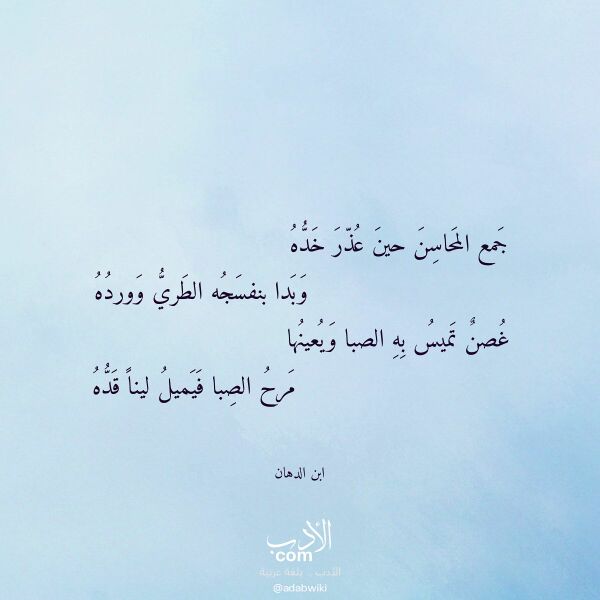 جَمع المَحَاسِنَ حينَ عُذّرَ خَدُّهُ
وَبَدا بنفسَجُه الطَريُّ وَوردُهُ
غُصنٌ تَميسُ بِهِ الصبا وَيُعينُها
مَرحُ الصِبا فَيَميلُ ليناً قَدُّهُ
ابن الدهان
الأدب
com
الأدب .. بلغة عربية
@adabwiki